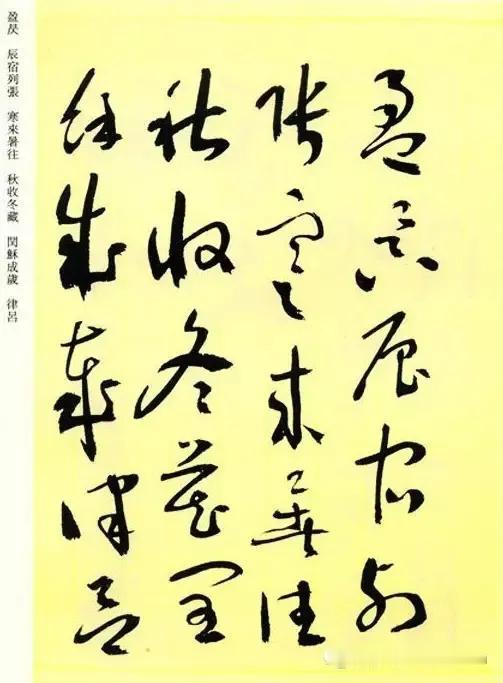 盈昃辰宿列
張寒來暑往
秋收冬藏閏
餘成歲律呂
盈昃 辰宿列張 寒來暑往 秋收冬藏 閏餘成歲 律呂